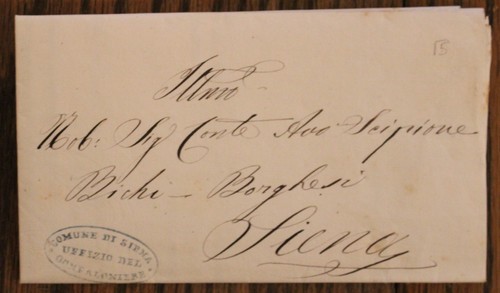 15
Illmo
Nob: Sig Conte Avo Scipione
Bichi - Borghesi
Siena
COMUNE DI SIENA
UFFIZIO DEL
GONFALONIERE